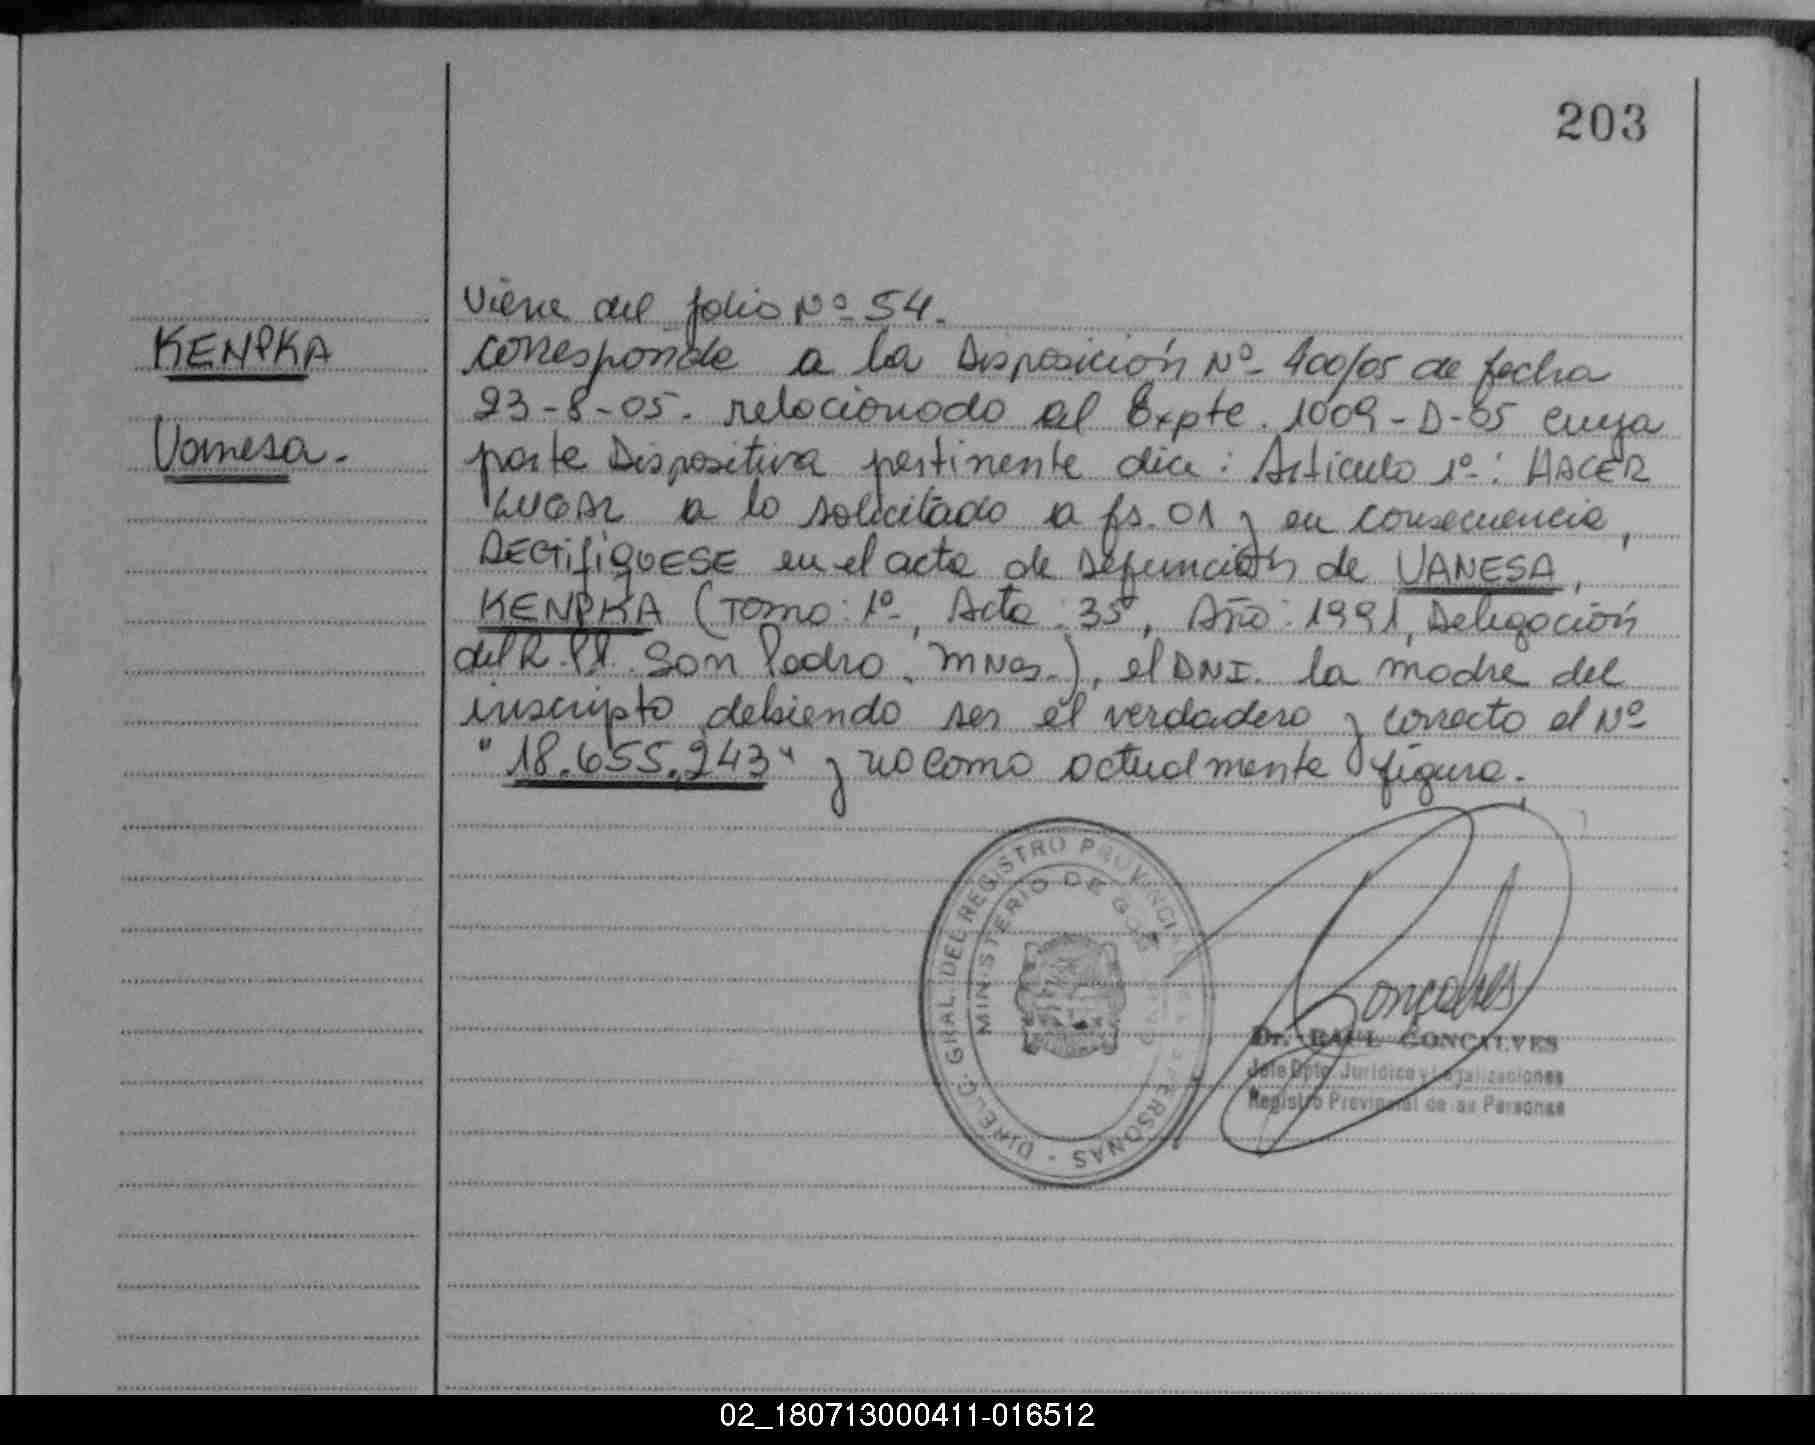 203
Viene del folio Nº 54.
KENPKA
corresponde a la Disposición Nº 400/05 de fecha
23-8-05. relacionado al Expte. 1009-D-05 cuya
Vanesa.-
parte Dispositiva pertinente dice: Artículo 1º-: HACER
LUGAR a lo solicitado a fs. 01 y en consecuencia,
RECTIFIQUESE en el acta de Defunción de VANESA,
KENPKA (Tomo: 1º-, Acta: 35, Año: 1991, Delegación
del R.PP. San Pedro. Mnes.), el DNI. la madre del
inscripto debiendo ser el verdadero y correcto el Nº
"18.655.243" y no como actualmente figura.
DIREC. GRAL. DEL REGISTRO PROVINCIAL DE LAS PERSONAS -
MINISTERIO DE GOBIERNO
Goncalves
Dr. RAUL GONCALVES
Jefe Dpto. Jurídico y Legalizaciones
Registro Provincial de las Personas
02_180713000411-016512